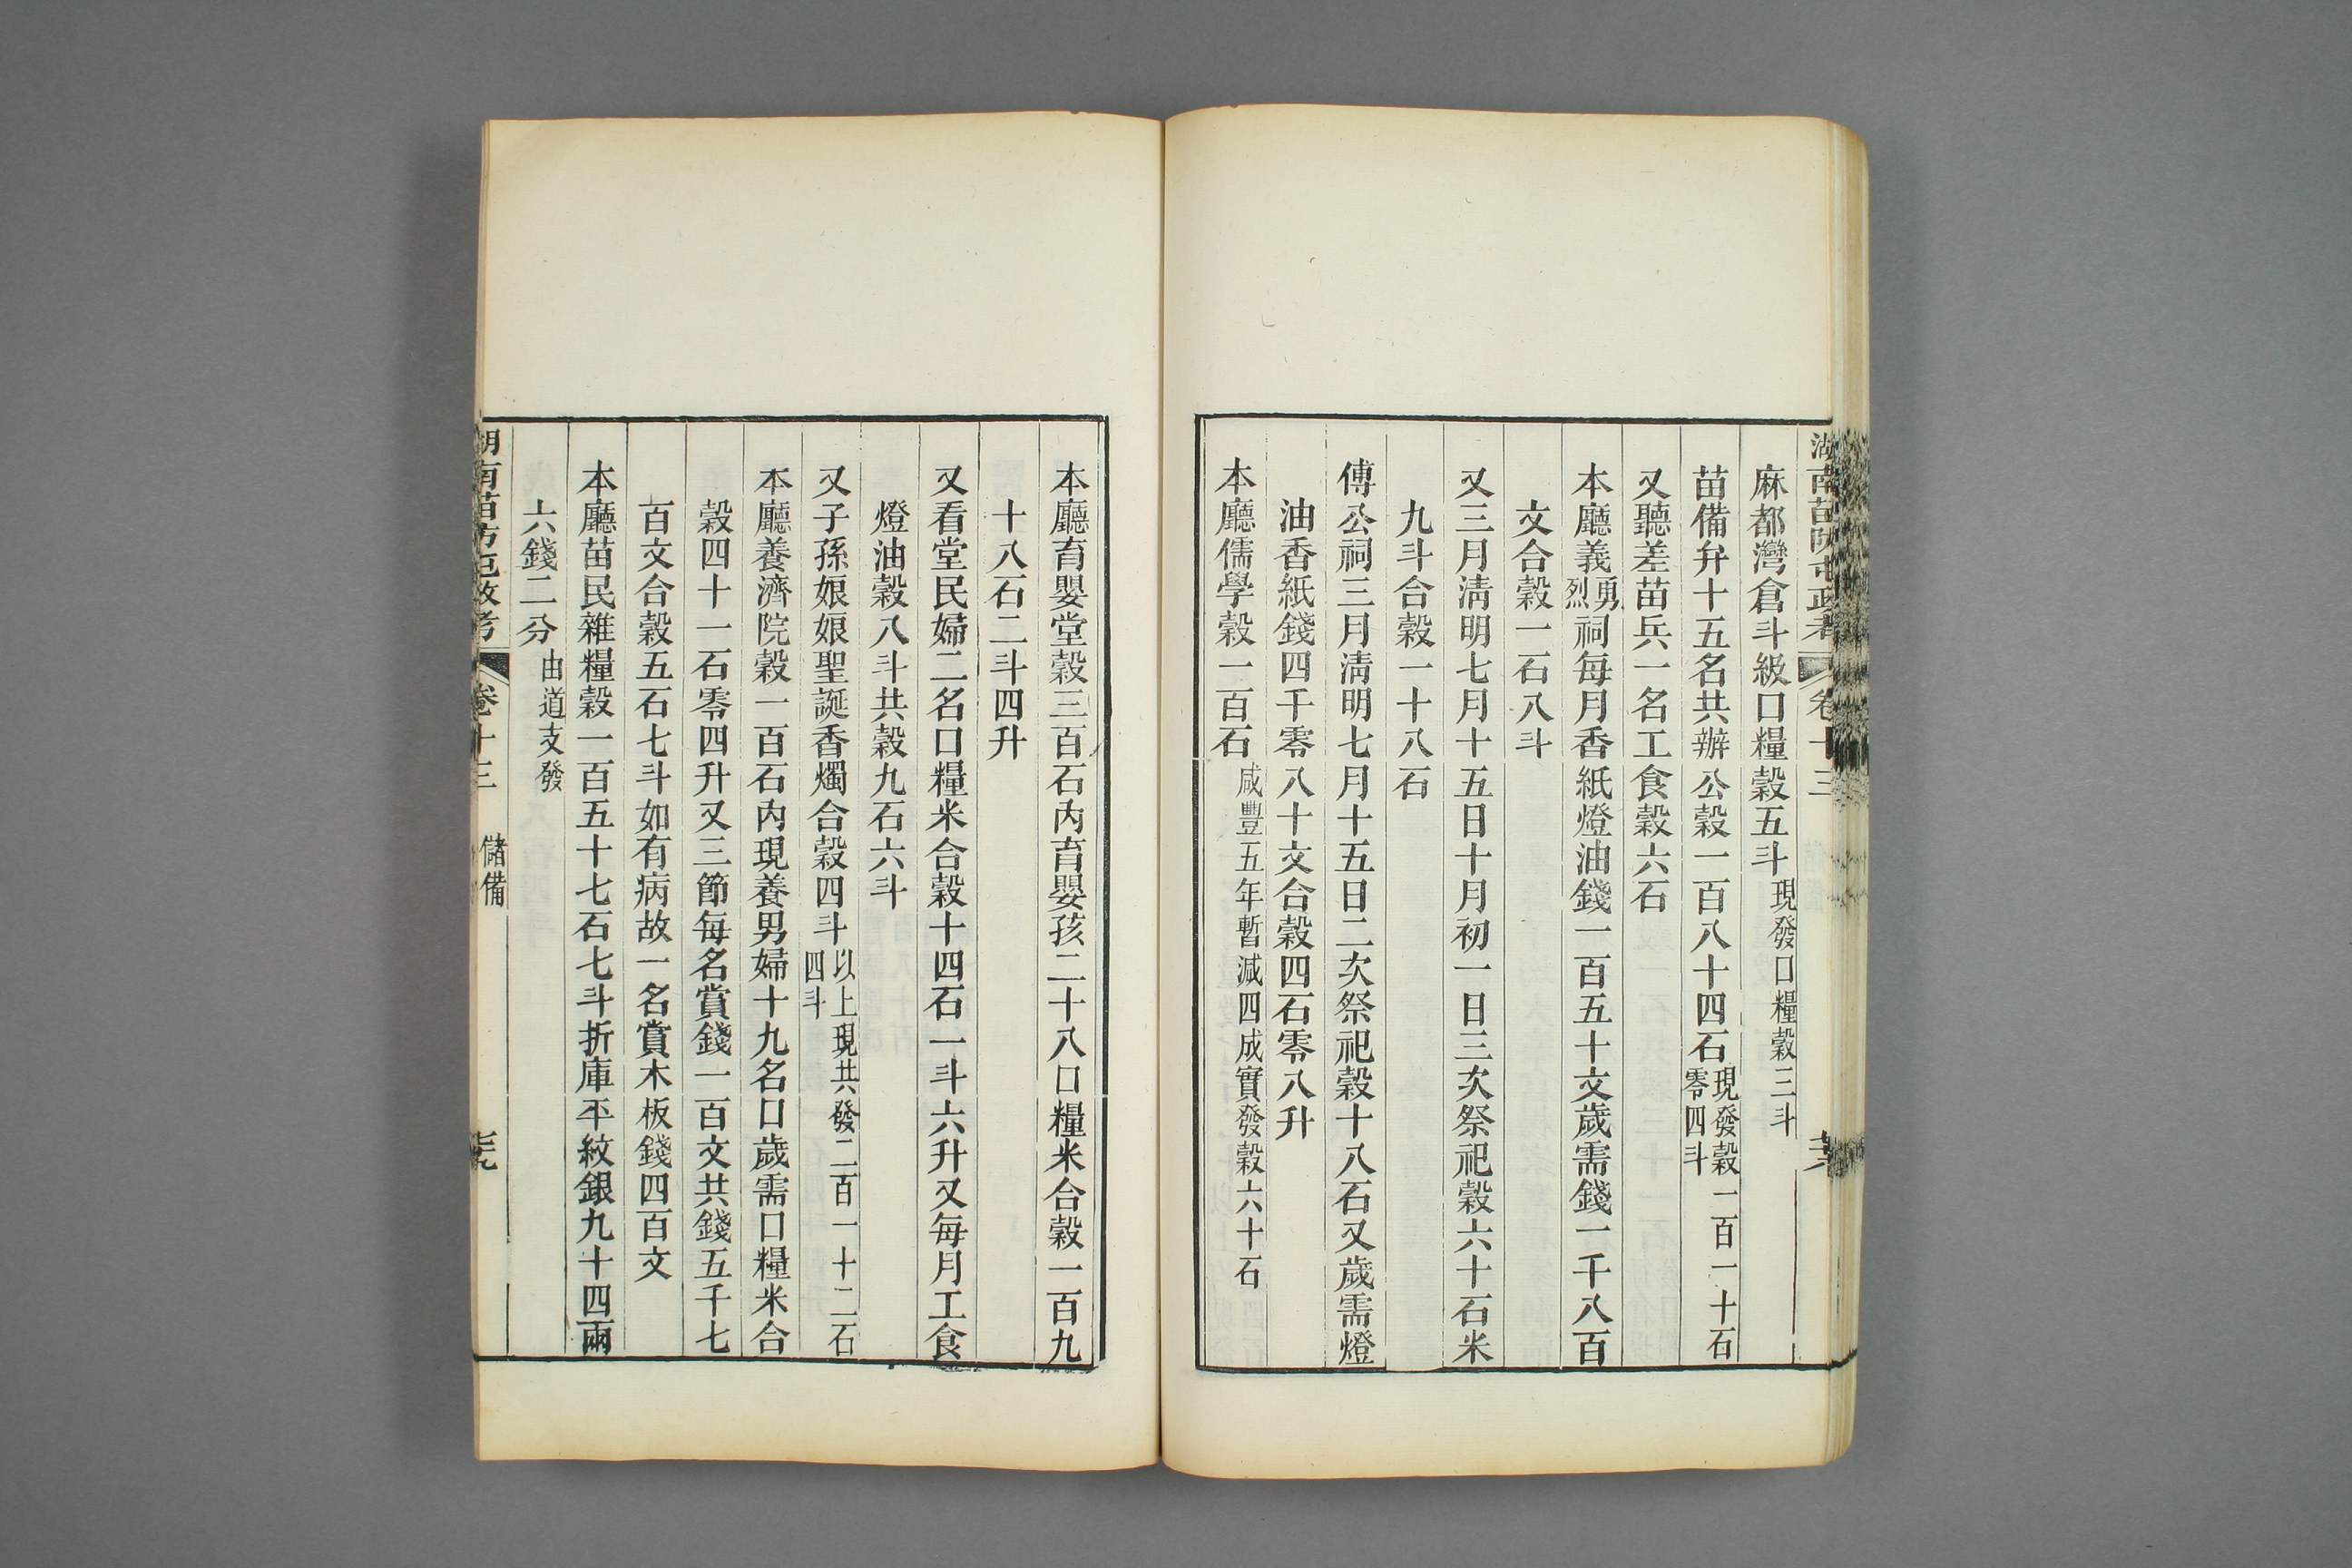 湖南苗防屯政考 卷十三
麻都灣倉斗級口糧穀五斗現發口糧穀三斗
苗備弁十五名共辦公穀一百八十四石現發穀一百一十石零四斗
又聽差苗兵一名工食穀六石
本廳義勇烈祠每月香紙燈油錢一百五十文歲需錢一千八百
文合穀一石八斗
又三月清明七月十五日十月初一日三次祭祀穀六十石米
九斗合穀一十八石
傅公祠三月清明七月十五日二次祭祀穀十八石又歲需燈
油香紙錢四千零八十文合穀四石零八升
本廳儒學穀一百石咸豐五年暫減四成實發穀六十石
本廳育嬰堂穀三百石內育嬰孩二十八口糧米合穀一百九
十八石二斗四升
又看堂民婦二名口糧米合穀十四石一斗六升又每月工食
燈油穀八斗共穀九石六斗
又子孫娘娘聖誕香燭合穀四斗以上現共發二百一十二石四斗
本廳養濟院穀一百石內現養男婦十九名口歲需口糧米合
穀四十一石零四升又三節每名賞錢一百文共錢五千七
百文合穀五石七斗如有病故一名賞木板錢四百文
本廳苗民雜糧穀一百五十七石七斗折庫平紋銀九十四兩
六錢二分由道支發
湖南苗防屯政考 卷十三 儲備